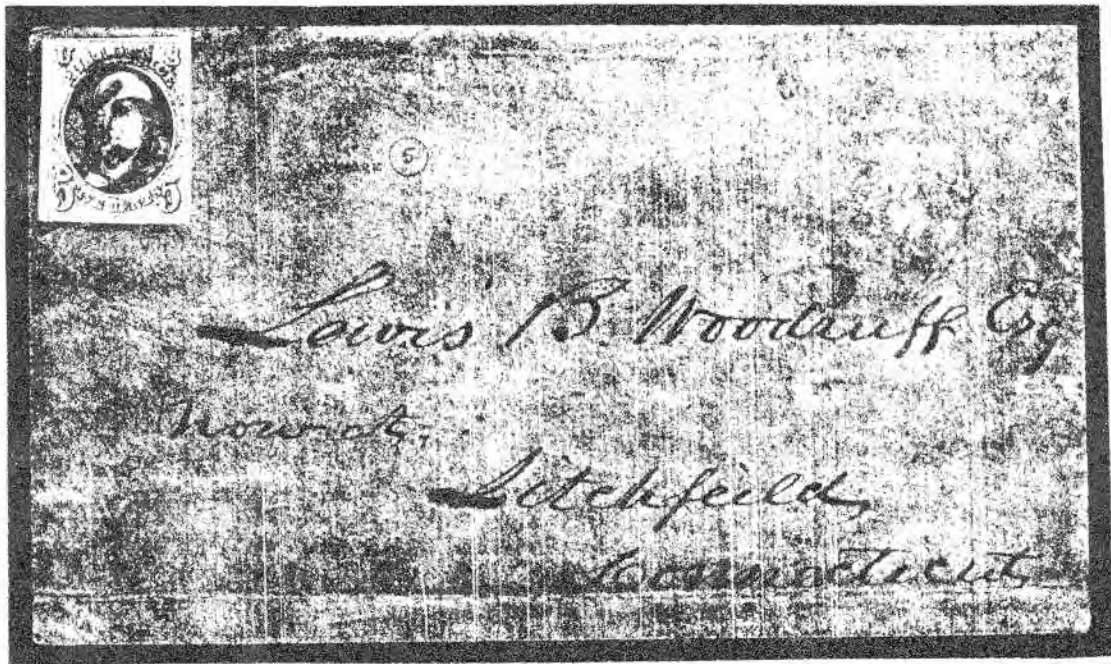 5
Lewis B. Woodruff Esq
Litchfeild,
Connecticut,